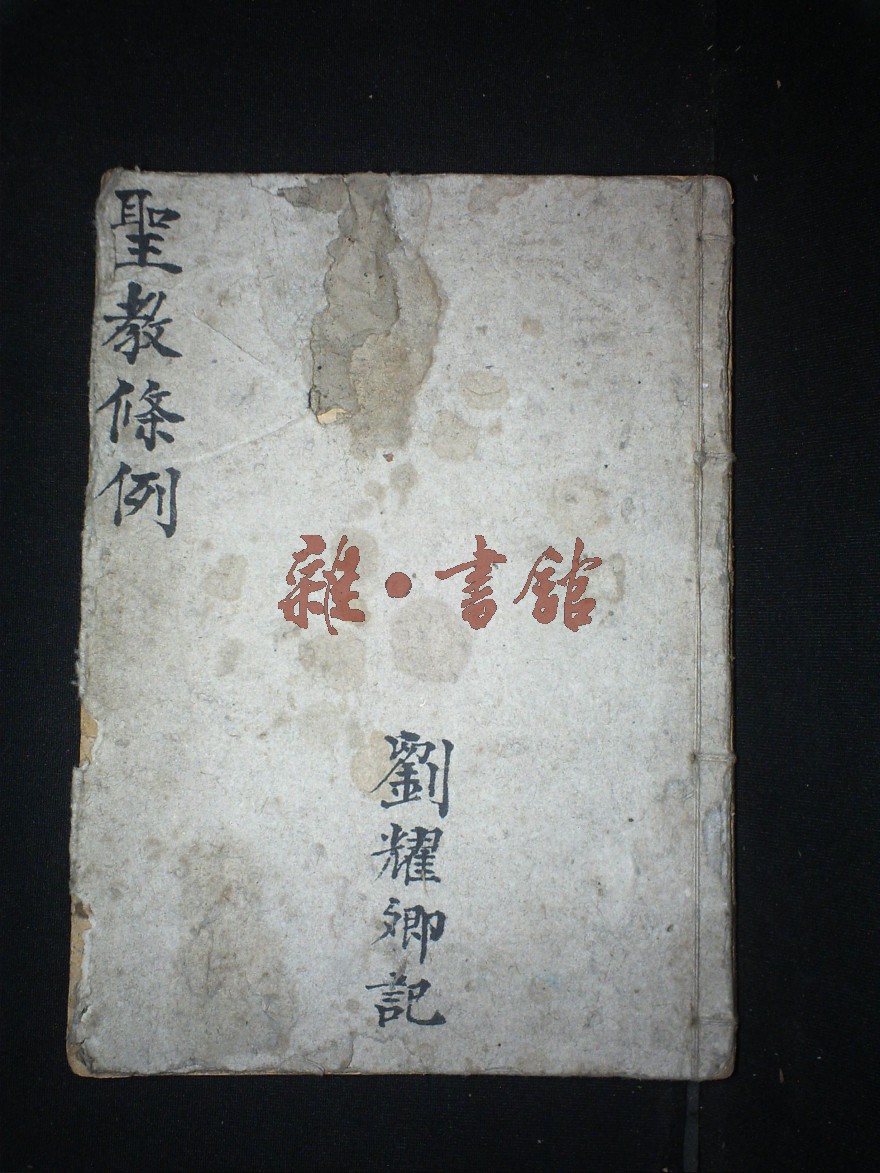 聖教條例
雜·書館
劉耀卿記